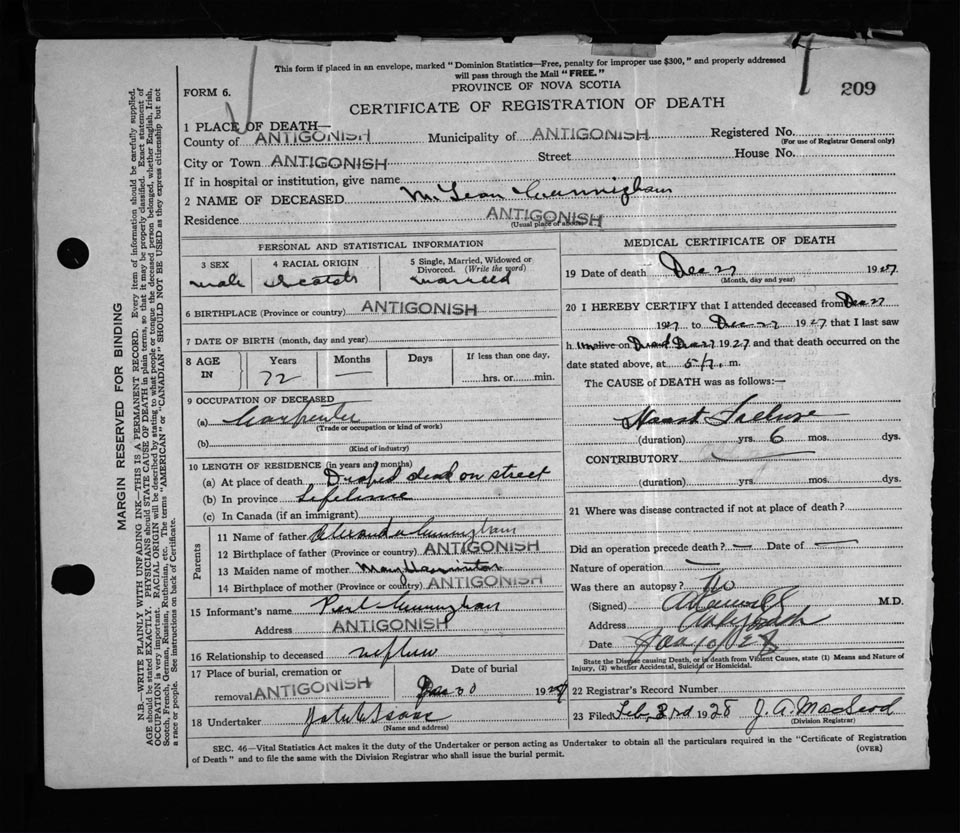 This form if placed in an envelope, marked "Dominion Statistics—Free, penalty for improper use $300," and properly addressed
will pass through the Mail "FREE."
209
PROVINCE OF NOVA SCOTIA
FORM 6.
CERTIFICATE OF REGISTRATION OF DEATH
1 PLACE OF DEATH—
County of ANTIGONISH Municipality of ANTIGONISH Registered No.
(For use of Registrar General only)
City or Town ANTIGONISH Street House No.
If in hospital or institution, give name
2 NAME OF DECEASED Cunningham
Residence ANTIGONISH
(Usual place of abode)
PERSONAL AND STATISTICAL INFORMATION
3 SEX 4 RACIAL ORIGIN 5 Single, Married, Widowed or
Divorced. (Write the word)
male Scotch married
6 BIRTHPLACE (Province or country) ANTIGONISH
7 DATE OF BIRTH (month, day and year)
8 AGE IN Years Months Days If less than one day,
72 — hrs. or min.
9 OCCUPATION OF DECEASED
(a) Carpenter
(Trade or occupation or kind of work)
(b)
(Kind of industry)
10 LENGTH OF RESIDENCE (in years and months)
(a) At place of death Droped dead on street
(b) In province Lifetime
(c) In Canada (if an immigrant)
Parents
11 Name of father Cunningham
12 Birthplace of father (Province or country) ANTIGONISH
13 Maiden name of mother Mary
14 Birthplace of mother (Province or country) ANTIGONISH
15 Informant's name Cunningham
Address ANTIGONISH
16 Relationship to deceased nephew
17 Place of burial, cremation or Date of burial
removal ANTIGONISH 30 192
18 Undertaker
(Name and address)
MEDICAL CERTIFICATE OF DEATH
19 Date of death Dec 27 1927
(Month, day and year)
20 I HEREBY CERTIFY that I attended deceased from Dec 27
1927 to Dec 27 1927 that I last saw
h im alive on Dead Dec 27 1927 and that death occurred on the
date stated above, at m.
The CAUSE of DEATH was as follows:—
Heart Failure
(duration) yrs. 6 mos. dys.
CONTRIBUTORY
(duration) yrs. mos. dys.
21 Where was disease contracted if not at place of death?
Did an operation precede death? — Date of —
Nature of operation —
Was there an autopsy? No
(Signed) M.D.
Address
Date Jan 10 1928
State the Disease causing Death, or in death from Violent Causes, state (1) Means and Nature of
Injury, (2) whether Accidental, Suicidal or Homicidal.
22 Registrar's Record Number
23 Filed Feb. 3rd 1928 J. A. MacLeod
(Division Registrar)
SEC. 46—Vital Statistics Act makes it the duty of the Undertaker or person acting as Undertaker to obtain all the particulars required in the "Certificate of Registration
of Death" and to file the same with the Division Registrar who shall issue the burial permit.
(OVER)
MARGIN RESERVED FOR BINDING
N.B.—WRITE PLAINLY WITH UNFADING INK—THIS IS A PERMANENT RECORD. Every item of information should be carefully supplied.
AGE should be stated EXACTLY. PHYSICIANS should STATE CAUSE OF DEATH in plain terms, so that it may be properly classified. Exact statement of
OCCUPATION is very important. RACIAL ORIGIN will be described by stating to what people or tongue the deceased person belonged, whether English, Irish,
Scotch, French, German, Russian, Ruthenian, etc. The terms "AMERICAN" or "CANADIAN" SHOULD NOT BE USED as they express citizenship but not
a race or people. See instructions on back of Certificate.